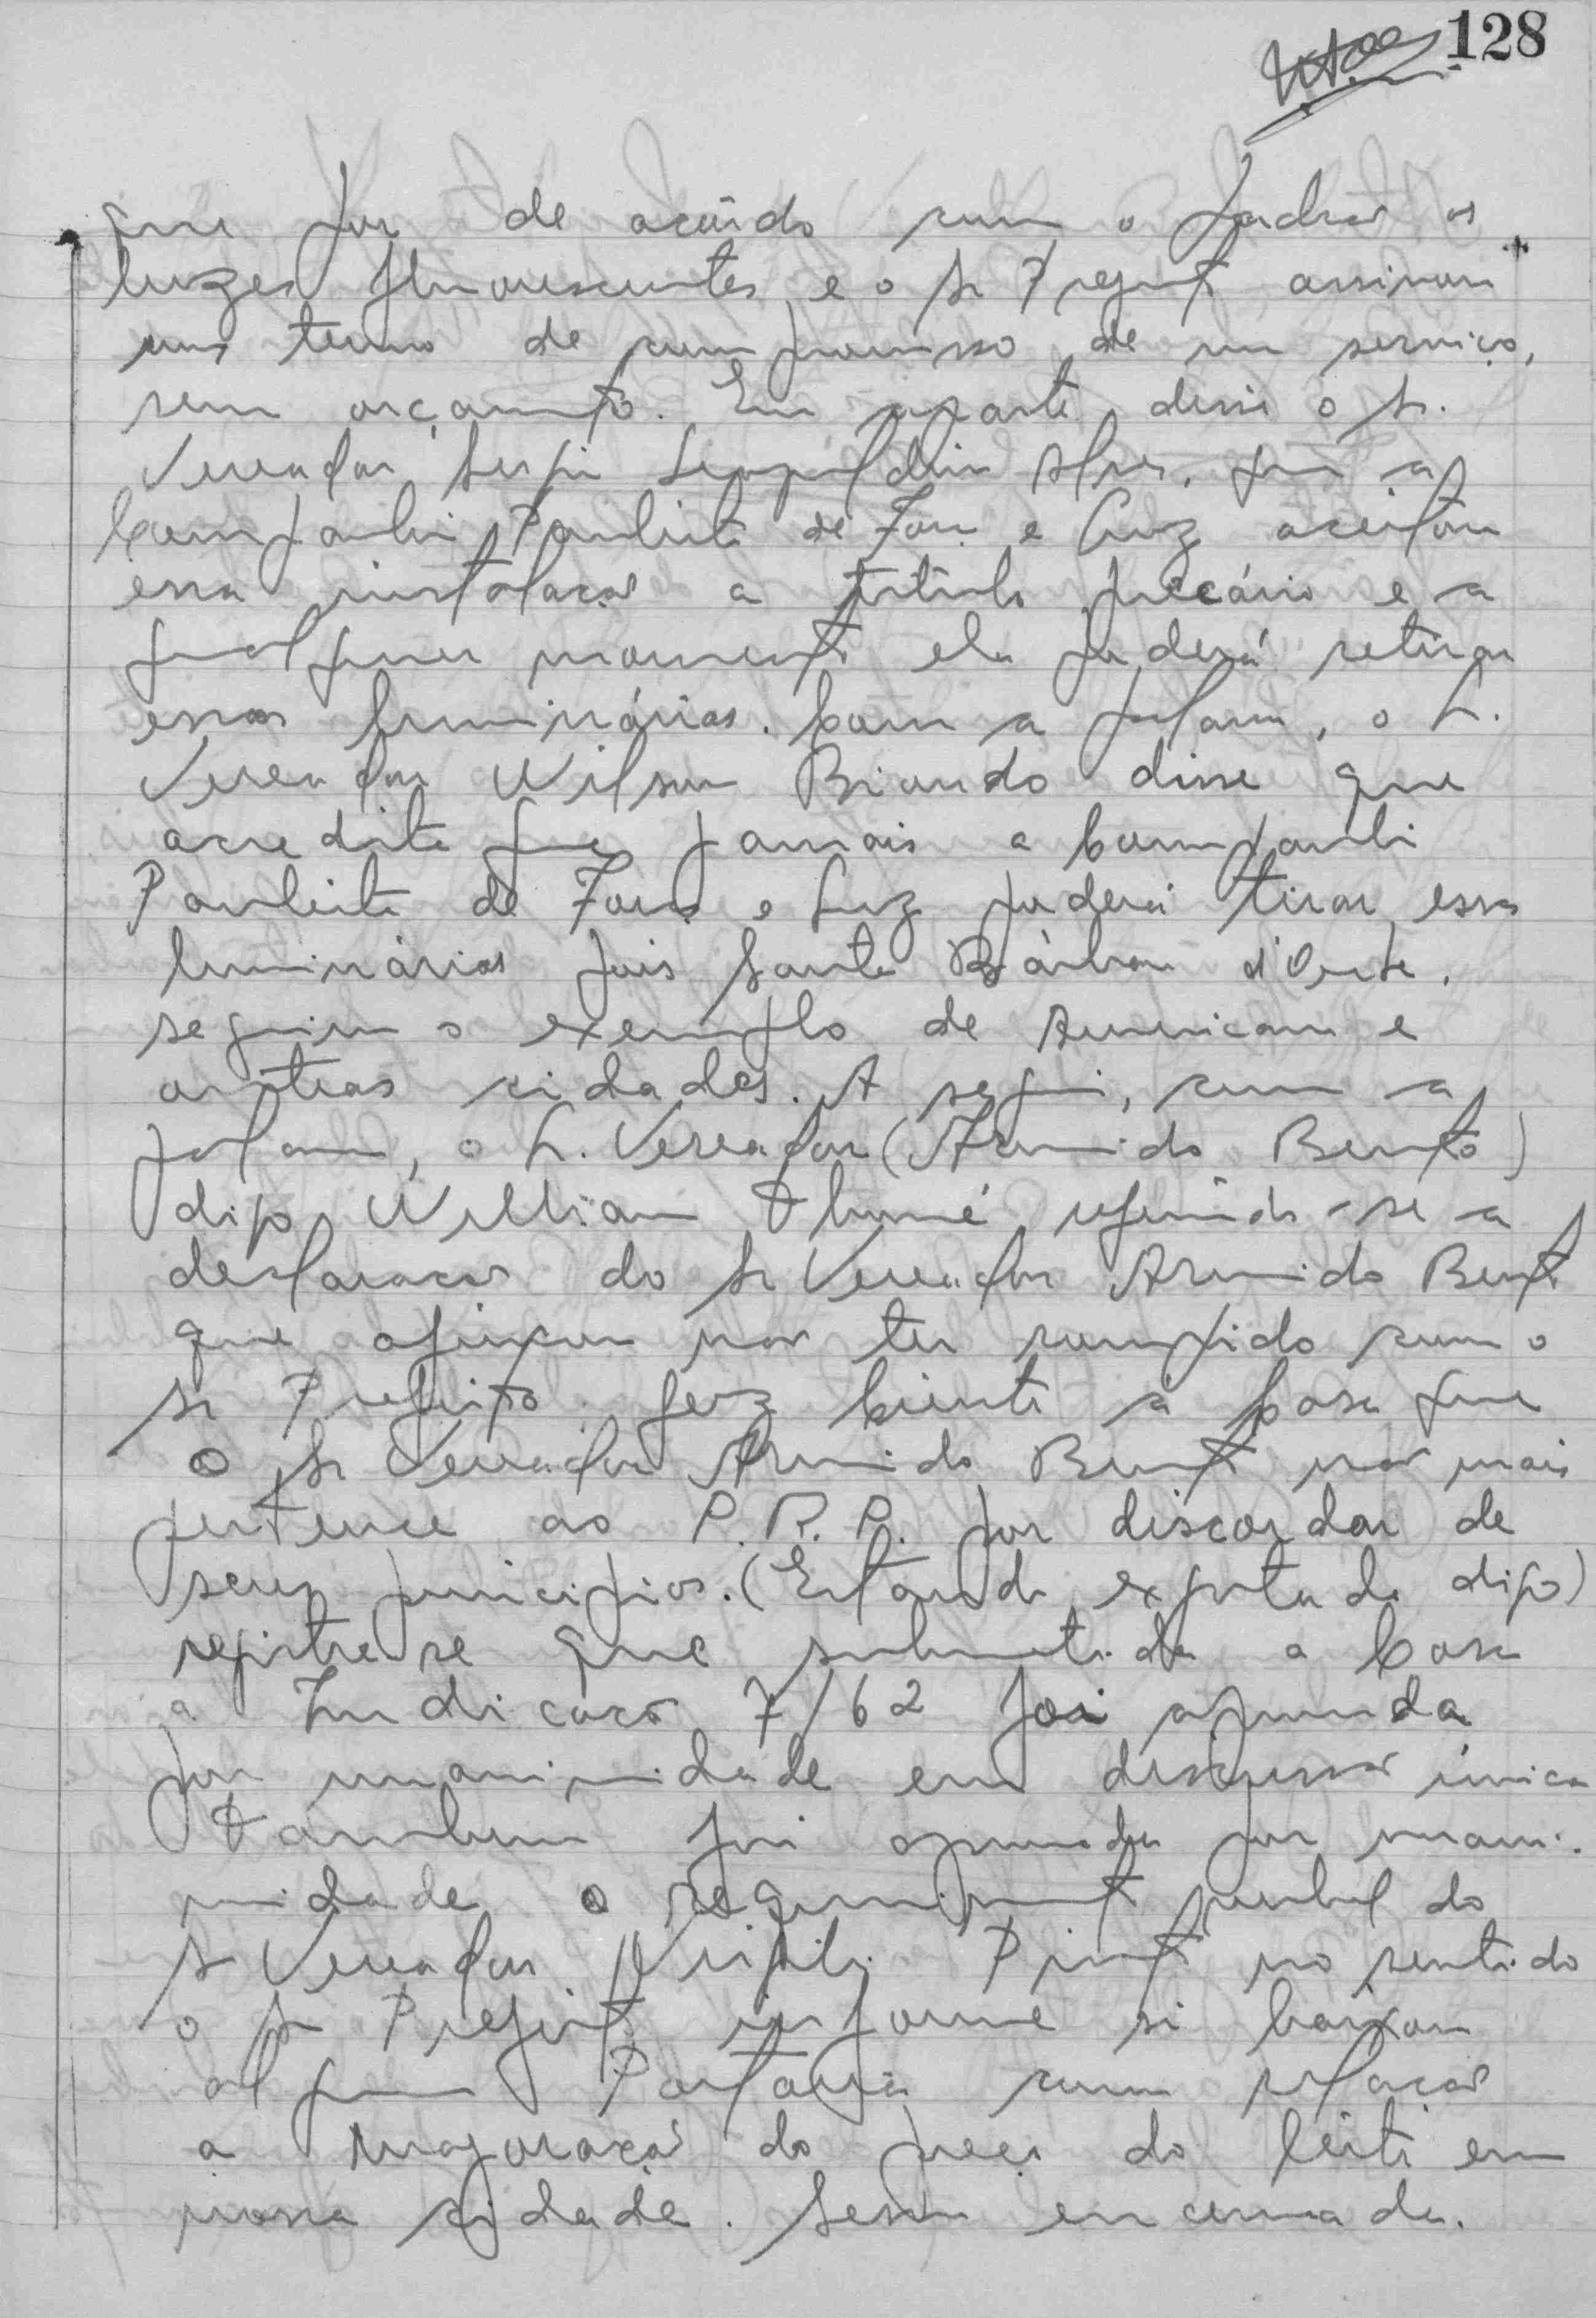 128
que for de acôrdo com o padrão as
luzes fluorescentes, e o Sr Prefeito assinou
um termo de compromisso de um serviço,
sem orçamento. Em aparte disse o Sr.
Vereador Sergio Leopoldino Alves, que a
Companhia Paulista de Força e Luz aceitou
essa instalação a titulo precário e a
qualquer momento ela poderá retirar
essas luminárias. Com a palavra, o Sr.
Vereador Wilson Biando disse que
acredita que jamais a Companhia
Paulista de Força e Luz poderá tirar essas
luminárias pois Santa Bárbara d'Oeste,
seguiu o exemplo de Americana e
outras cidades. A seguir, com a
palavra, o Sr. Vereador (Armindo Bento)
digo William Thomé referindo-se a
declaração do Sr Vereador Armindo Bento
que afirmou não ter rompido com o
Sr Prefeito fez ciente a Casa que
O Sr Vereador Armindo Bento não mais
pertence ao P.R.P. por discordar de
seus principios. (Estando esgotada digo)
registre-se que submetida a Casa
a Indicação 7/62 foi aprovada
por unanimidade em discussão única
Tambem foi aprovada por unani-
midade o requerimento verbal do
Sr Vereador Virgilio Pinto no sentido
o Sr Prefeito informe si baixou
alguma Portaria com relação
a majoração do preço do leite em
nossa cidade. Sessão encerrada.